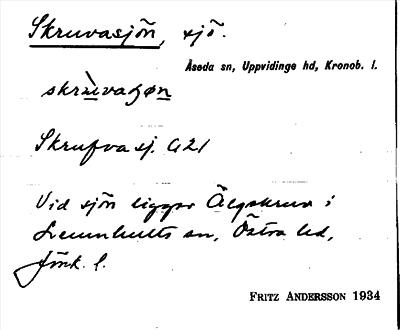 Skruvasjön, sjö.
Åseda sn, Uppvidinge hd, Kronob. l.
skrùvaʒøn
Skrufva sj. G21
Vid sjön ligger Älgskruv i
Lemnhults sn, Östra hd,
Jönk. l.
FRITZ ANDERSSON 1934